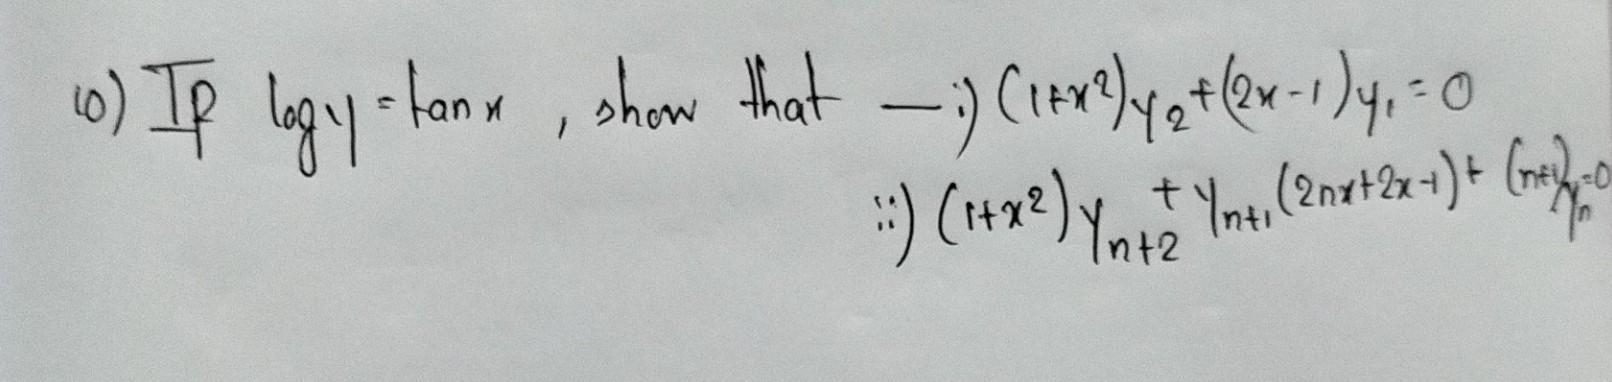 10) If log y = tan x , show that — i) (1+x²)y₂+(2x-1)y₁=0
ii) (1+x²)yₙ₊₂ + yₙ₊₁(2nx+2x-1)+ (n+1)yₙ=0